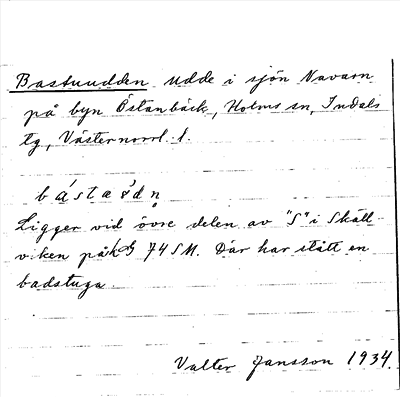 Bastuudden udde i sjön Navarn
på byn Östanbäck, Holms sn, Indals
tg, Västernorrl. l.
Ligger vid övre delen av "S" i Skäll-
viken på kbl 74 SM. Där har stått en
badstuga.
Valter Jansson 1934.